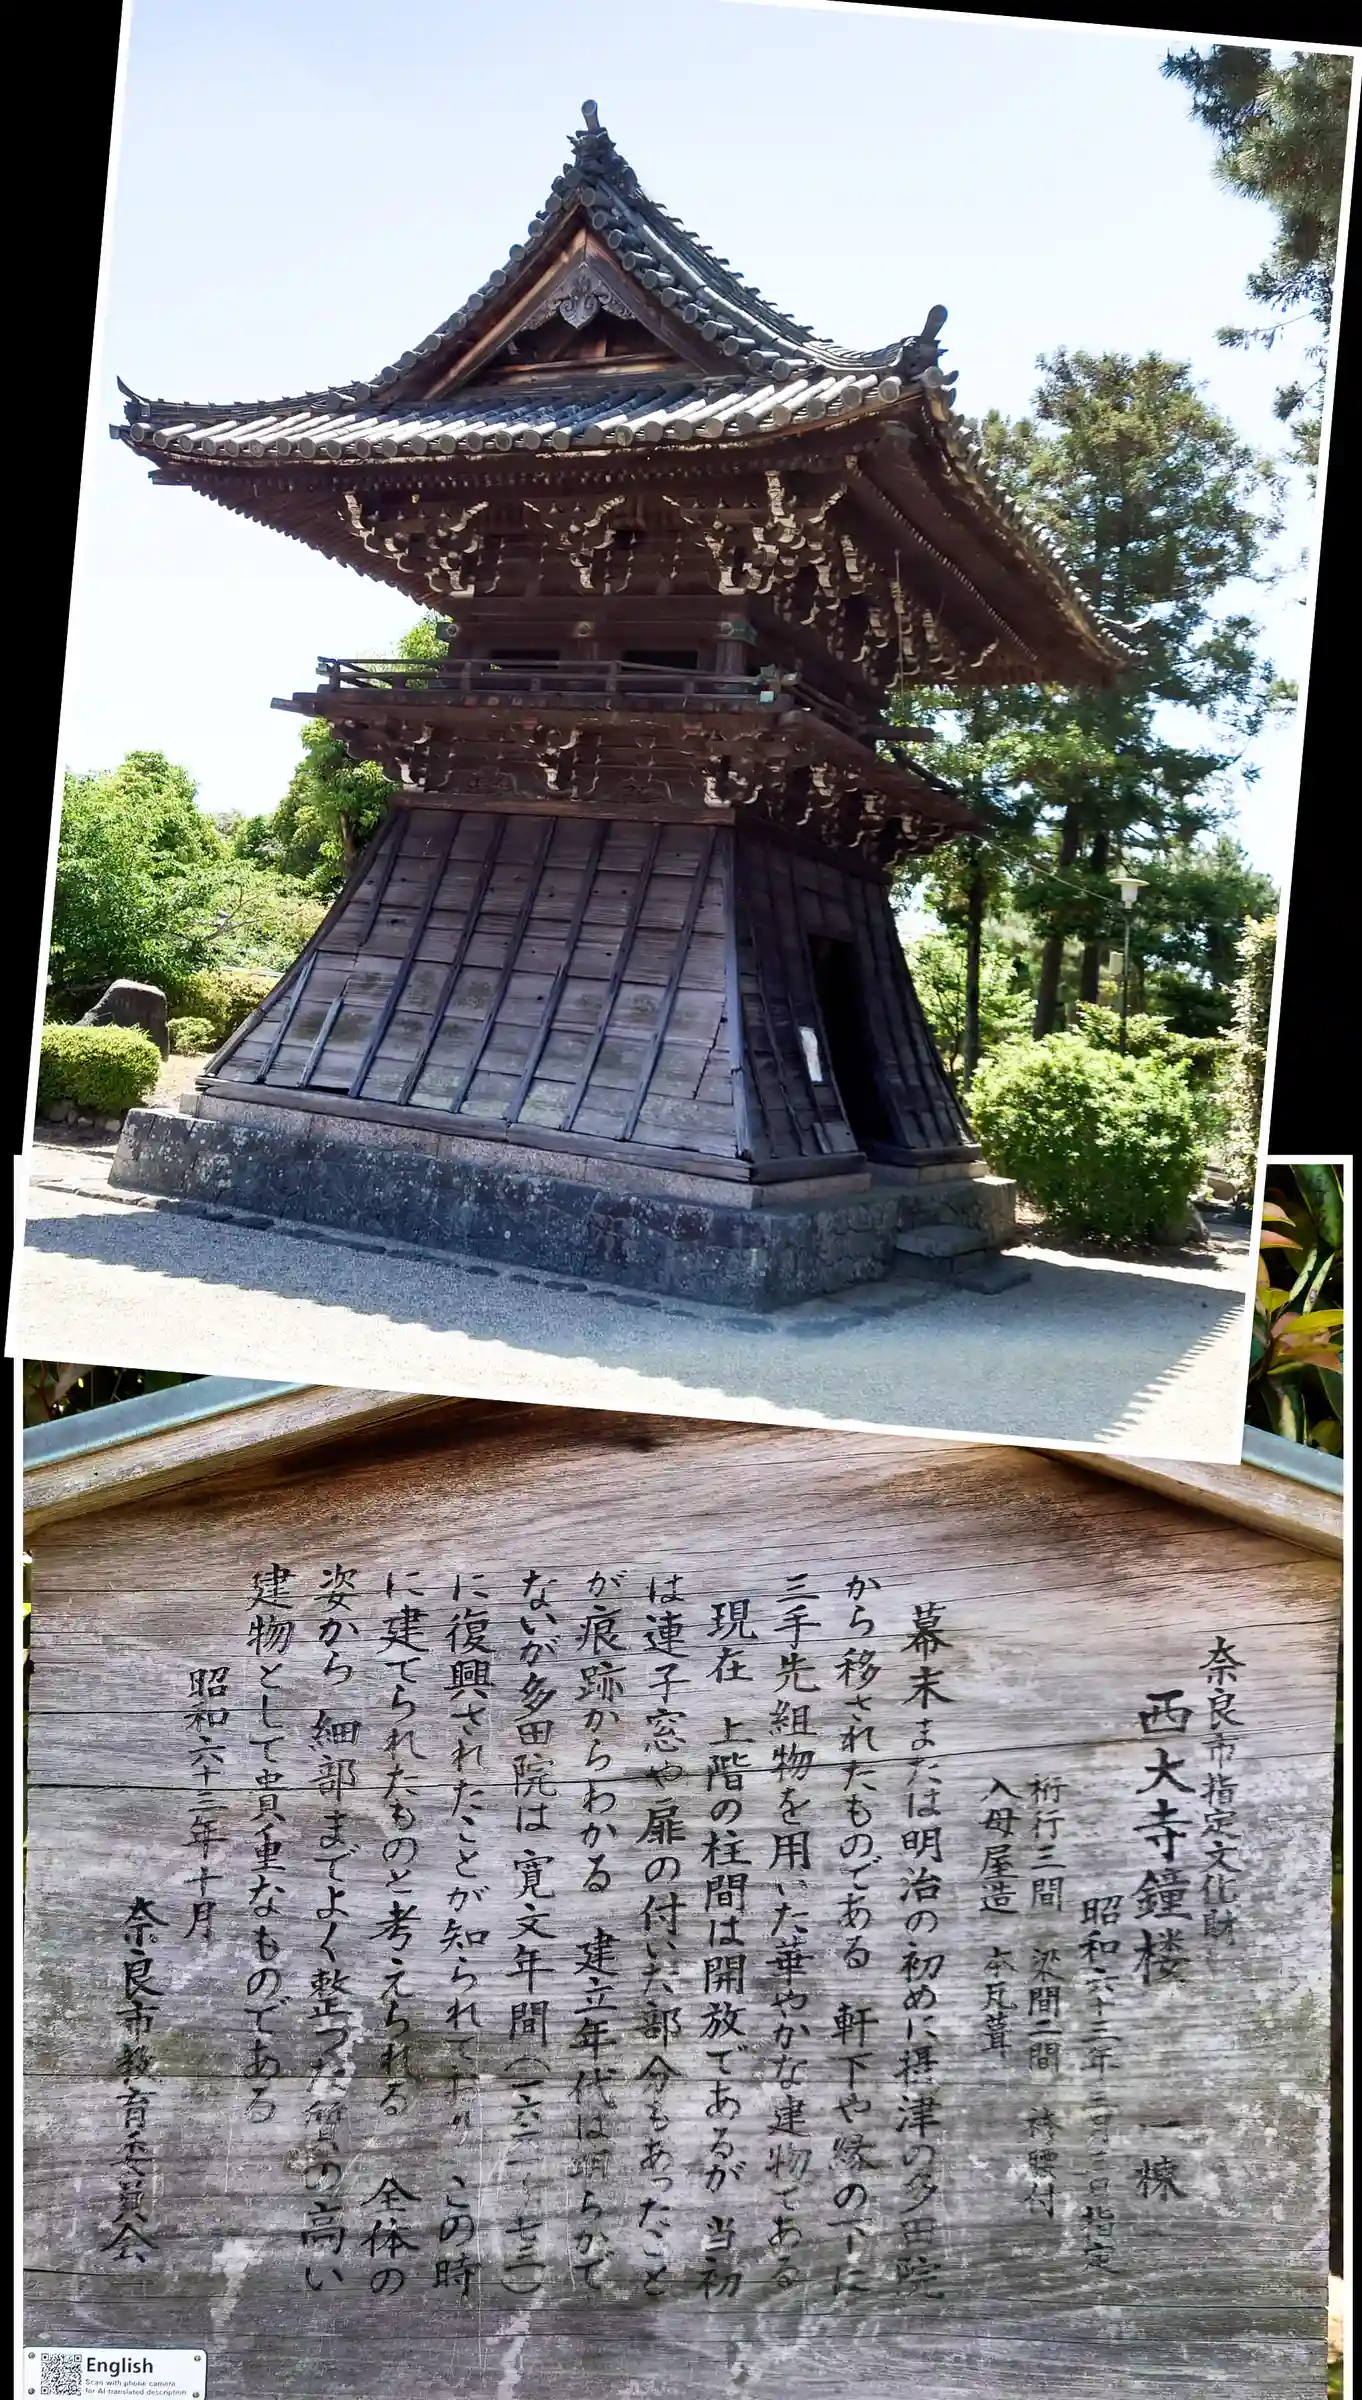 奈良市指定文化財
西大寺鐘楼 一棟
昭和六十三年三月三日指定
桁行三間 梁間二間 袴腰付
入母屋造 本瓦葺
幕末または明治の初めに摂津の多田院
から移されたものである 軒下や縁の下に
三手先組物を用いた華やかな建物である
現在 上階の柱間は開放であるが 当初
は連子窓や扉の付いた部分もあったこと
が痕跡からわかる 建立年代は明らかで
ないが多田院は 寛文年間(一六六一〜七三)
に復興されたことが知られており この時
に建てられたものと考えられる 全体の
姿から 細部までよく整った質の高い
建物として貴重なものである
昭和六十三年十月
奈良市教育委員会
English
Scan with phone camera
for AI translated description